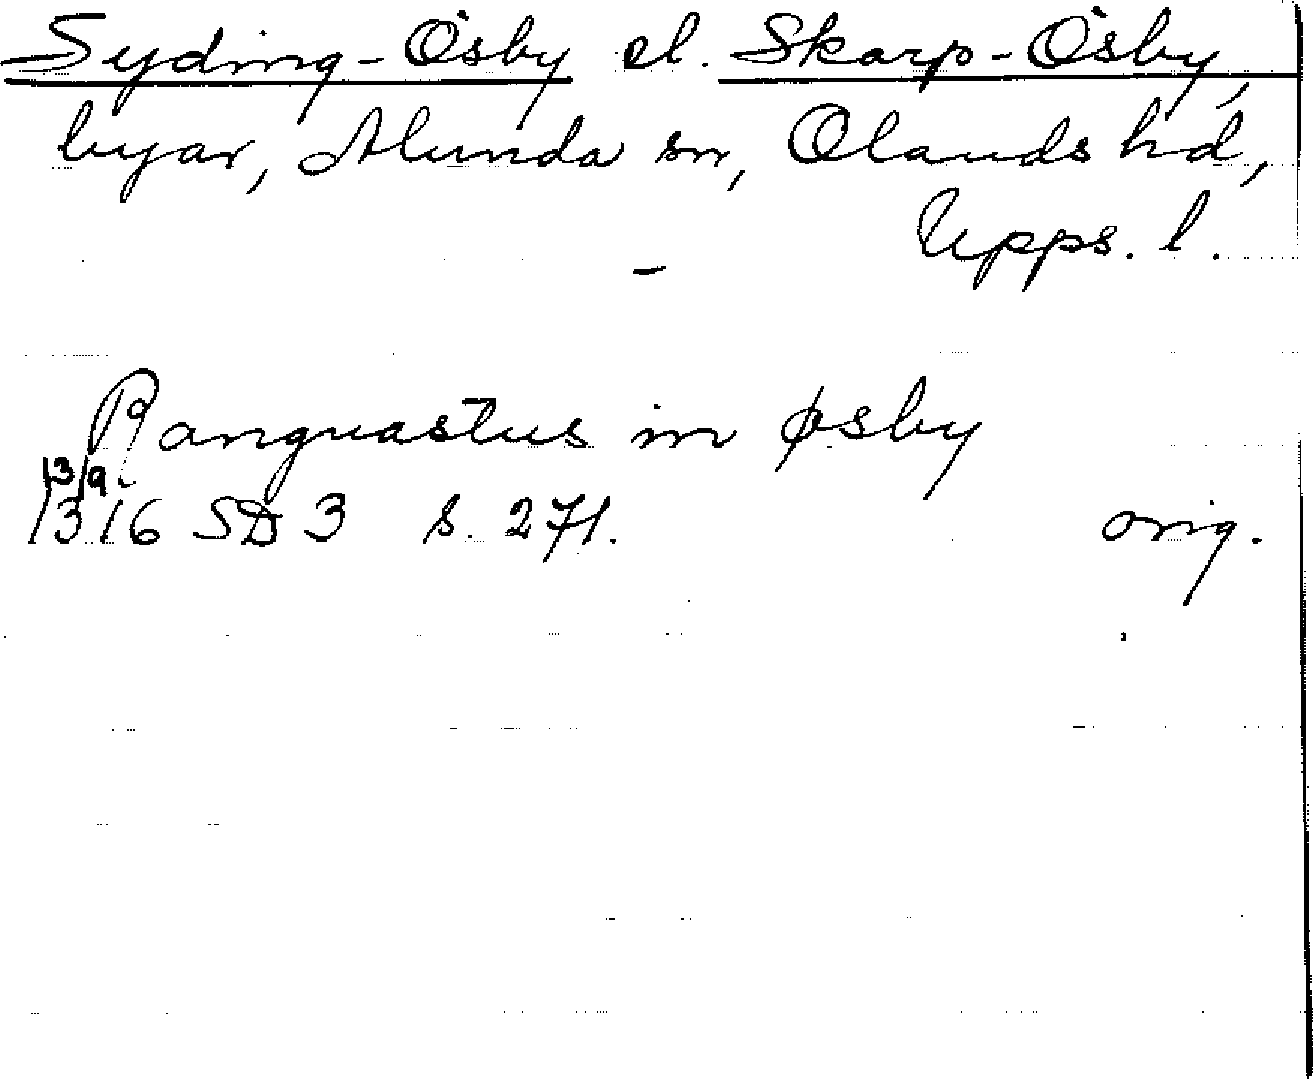 Syding-Ösby el. Skarp-Ösby,
byar, Alunda sn, Olands hd,
Upps. l.
—
Ranguastus in øsby
13/9
1316 SD 3 s. 271. orig.